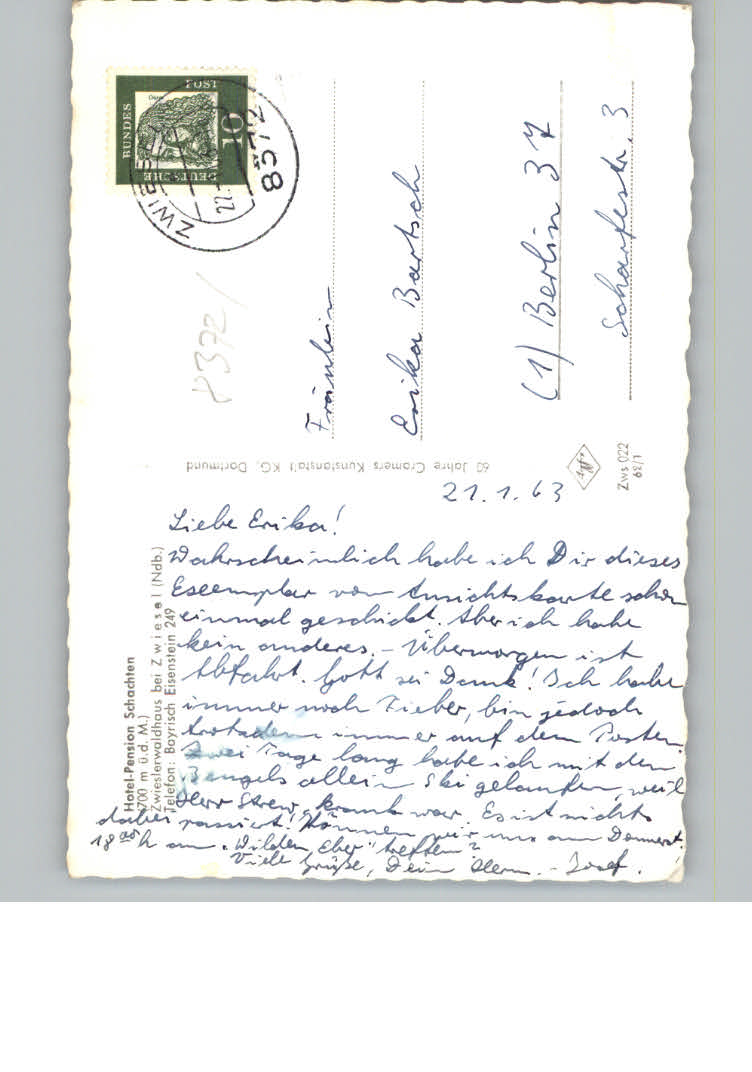 BUNDES
POST
DEUTSCHE
10
Dürer
8372
Fräulein
Erika Bartsch
(1) Berlin 37
Scharfestr. 3
60 Jahre Cramers Kunstanstalt KG, Dortmund
Zws 022
62/1
Hotel-Pension Schachten
(700 m ü.d. M.)
Zwieslerwaldhaus bei Zwiesel (Ndb.)
Telefon: Bayrisch Eisenstein 249
21.1.63
Liebe Erika!
Wahrscheinlich habe ich Dir dieses
Exemplar von Ansichtskarte schon
einmal geschickt. Aber ich habe
kein anderes. – Übermorgen ist
Abfahrt. Gott sei Dank! Ich habe
immer noch Fieber, bin jedoch
trotzdem immer auf dem Posten.
Zwei Tage lang habe ich mit den
Bengels allein Ski gelaufen, weil
Herr krank war. Es ist nichts
dabei passiert! Können wir uns am Donnerst.
18 00 h am "Wilden Eber" treffen?
Viele Grüße, Dein Herm.-Josef.!